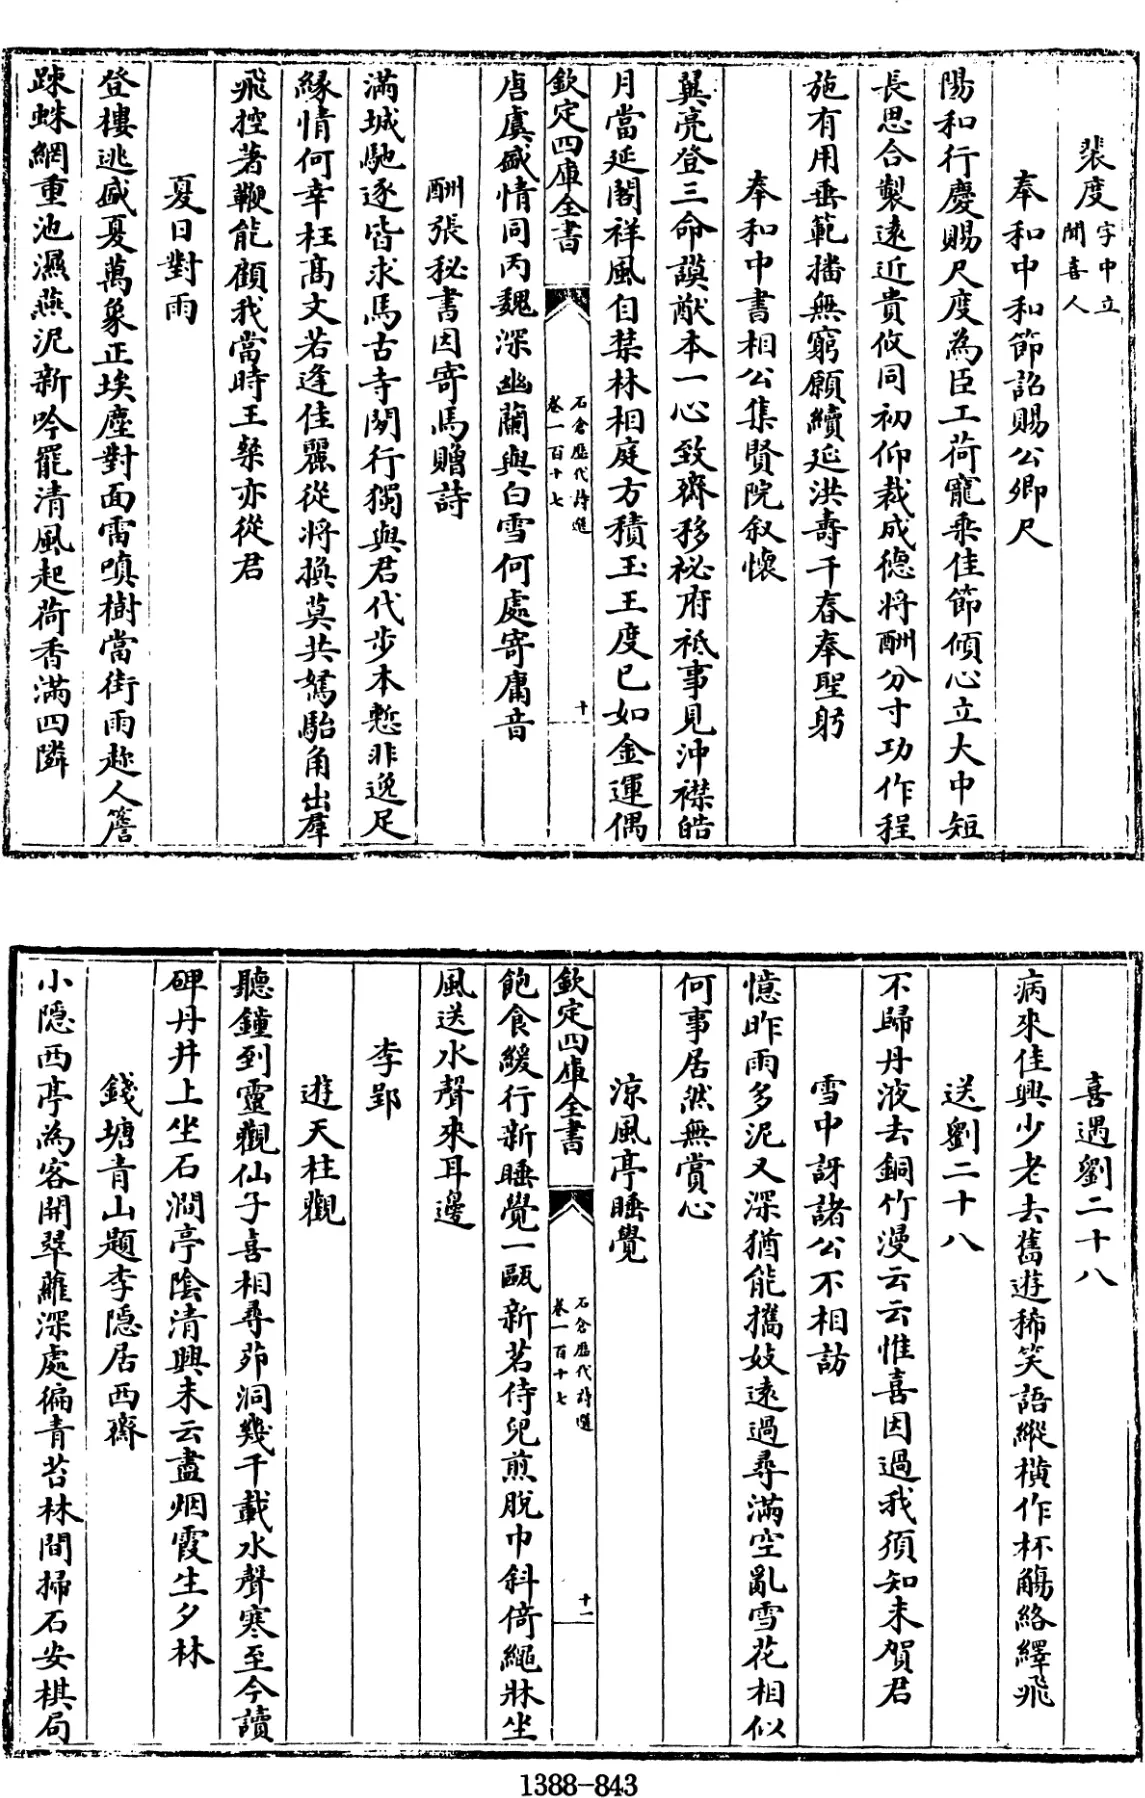 裴度字中立聞喜人
奉和中和節詔賜公卿尺
陽和行慶賜尺度為臣工荷寵乗佳節傾心立大中短
長思合製逺近貴攸同初仰裁成徳将酬分寸功作程
施有用垂範播無窮願續延洪壽千春奉聖躬
奉和中書相公集賢院叙懐
翼亮登三命謨猷本一心致齋移祕府祇事見沖襟皓
月當延閣祥風自禁林相庭方積玉王度已如金運偶
欽定四庫全書
石倉歴代詩選
卷一百十七
十
唐虞盛情同丙魏深幽蘭與白雪何處寄庸音
酬張秘書因寄馬贈詩
滿城馳逐皆求馬古寺閑行獨與君代步本慙非逸足
縁情何幸枉髙文若逢佳麗從将換莫共駑駘角出羣
飛控著鞭能顧我當時王粲亦從君
夏日對雨
登樓逃盛夏萬象正埃塵對面雷嗔樹當街雨趂人簷
踈蛛網重池濕燕泥新吟罷清風起荷香滿四隣
喜遇劉二十八
病來佳興少老去舊遊稀笑語縱橫作杯觴絡繹飛
送劉二十八
不歸丹液去銅竹漫云云惟喜因過我須知未賀君
雪中訝諸公不相訪
憶昨雨多泥又深猶能攜妓逺過尋滿空亂雪花相似
何事居然無賞心
涼風亭睡覺
欽定四庫全書
石倉歴代詩選
卷一百十七
十一
飽食緩行新睡覺一甌新茗侍兒煎脱巾斜倚繩牀坐
風送水聲來耳邊
李郢
遊天柱觀
聽鐘到靈觀仙子喜相尋茆洞幾千載水聲寒至今讀
碑丹井上坐石澗亭陰清興未云盡烟霞生夕林
錢塘青山題李隠居西齋
小隠西亭為客開翠蘿深處徧青苔林間掃石安棋局
1388-843